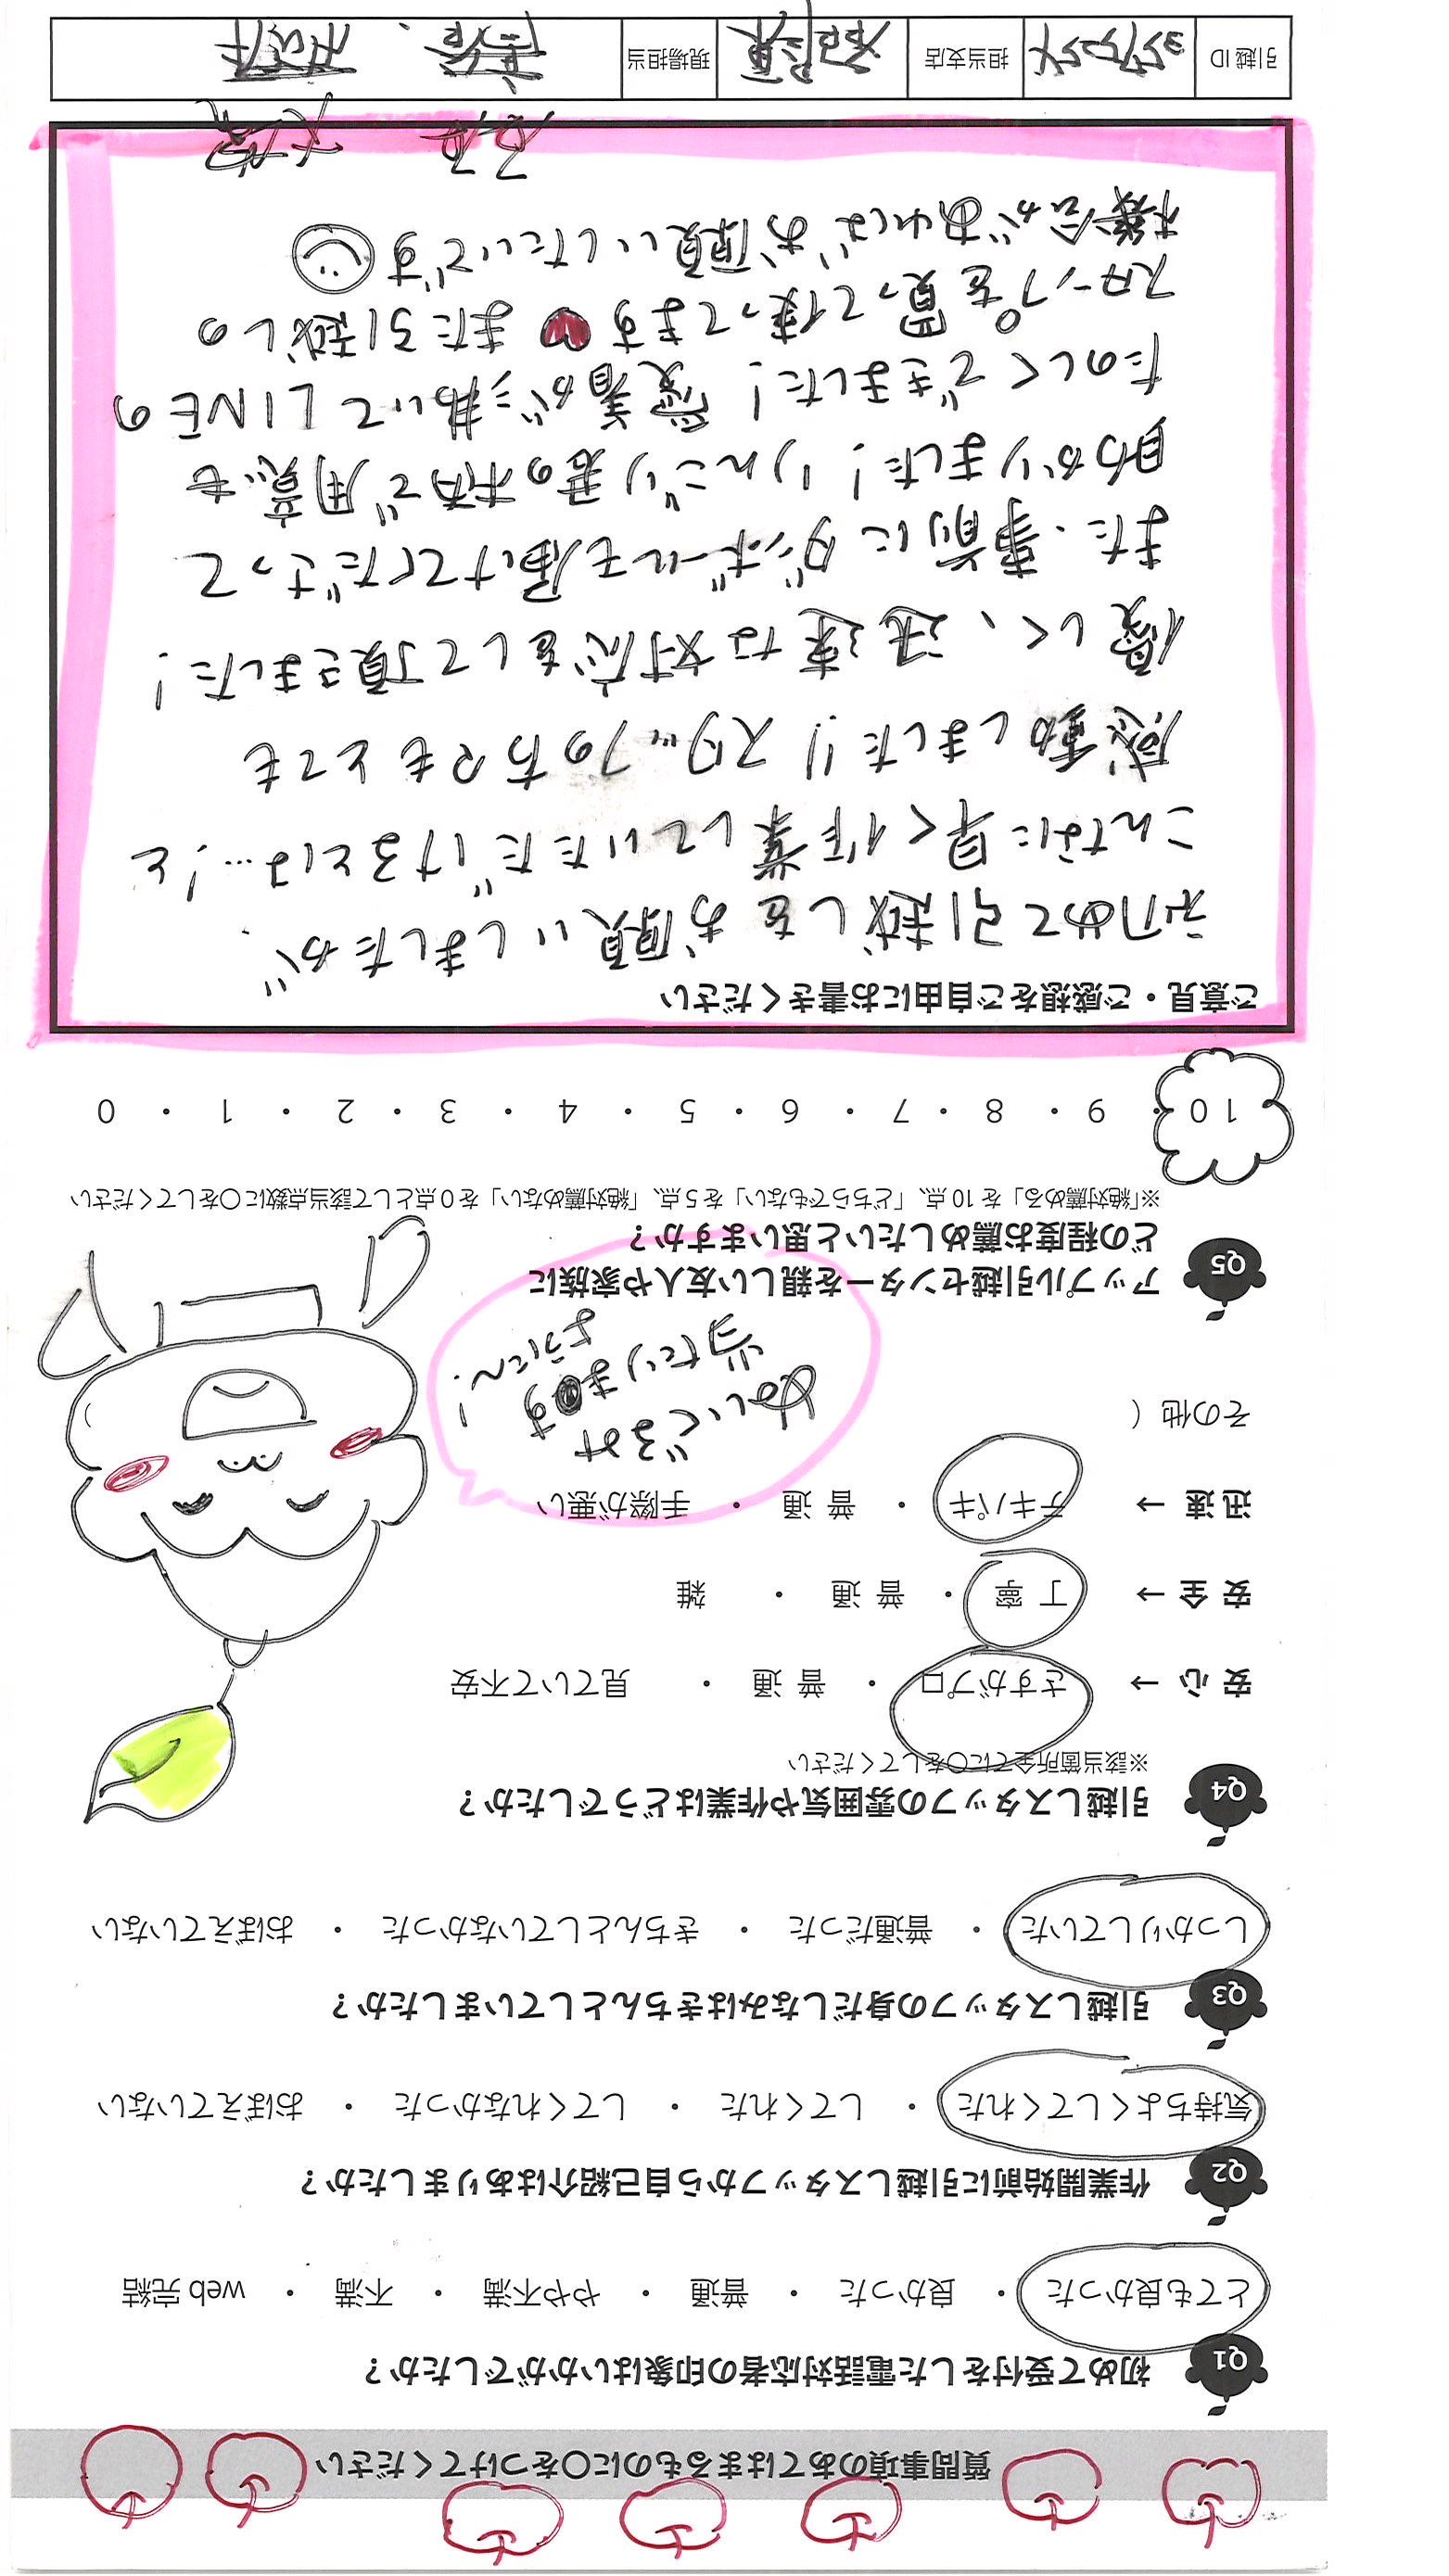 質問事項のあてはまるものに○をつけてください
Q1 初めて受付をした電話対応者の印象はいかがでしたか？
とても良かった ・ 良かった ・ 普通 ・ やや不満 ・ 不満 ・ web 完結
Q2 作業開始前に引越しスタッフから自己紹介はありましたか？
気持ちよくしてくれた ・ してくれた ・ してくれなかった ・ おぼえていない
Q3 引越しスタッフの身だしなみはきちんとしていましたか？
しっかりしていた ・ 普通だった ・ きちんとしていなかった ・ おぼえていない
Q4 引越しスタッフの雰囲気や作業はどうでしたか？
※該当箇所全てに○をしてください
安心 → さすがプロ ・ 普通 ・ 見ていて不安
安全 → 丁寧 ・ 普通 ・ 雑
迅速 → テキパキ ・ 普通 ・ 手際が悪い
その他（
ぬいぐるみ
当たります
ように〜！
Q5 アップル引越センターを親しい友人や家族に
どの程度お薦めしたいと思いますか？
※「絶対薦める」を10点、「どちらでもない」を5点、「絶対薦めない」を0点として該当点数に○をしてください
10 ・ 9 ・ 8 ・ 7 ・ 6 ・ 5 ・ 4 ・ 3 ・ 2 ・ 1 ・ 0
ご意見・ご感想をご自由にお書きください
初めて引越しをお願いしましたが、
こんなに早く作業していただけるとは…！と
感動しました!! スタッフの方々もとても
優しく、迅速な対応をして頂きました！
また、事前にダンボールも届けてくださって
助かりました！りんごり君の柄で用意も
たのしくできました！愛着が湧いてLINEの
スタンプを買って使ってます♥また引越しの
機会があればお願いしたいです
引越ID 担当支店 現場担当